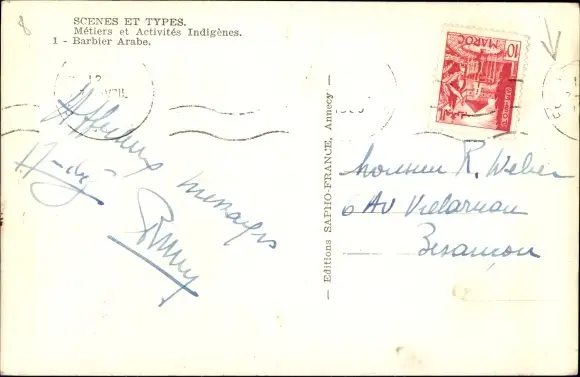 SCENES ET TYPES.
Métiers et Activités Indigènes.
1 - Barbier Arabe.
12
AVRIL
Affectueux messages
— Editions SAPHO-FRANCE, Annecy —
10F
MAROC
Monsieur R. Weber
6 Av Vielarnau
Besançon